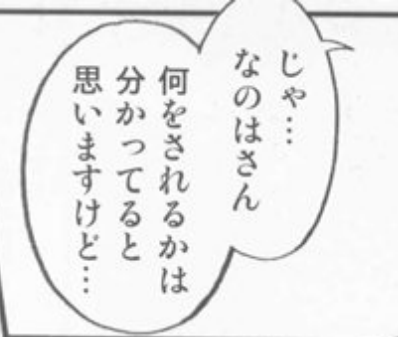 じゃ…
なのはさん
何をされるかは
分かってると
思いますけど…